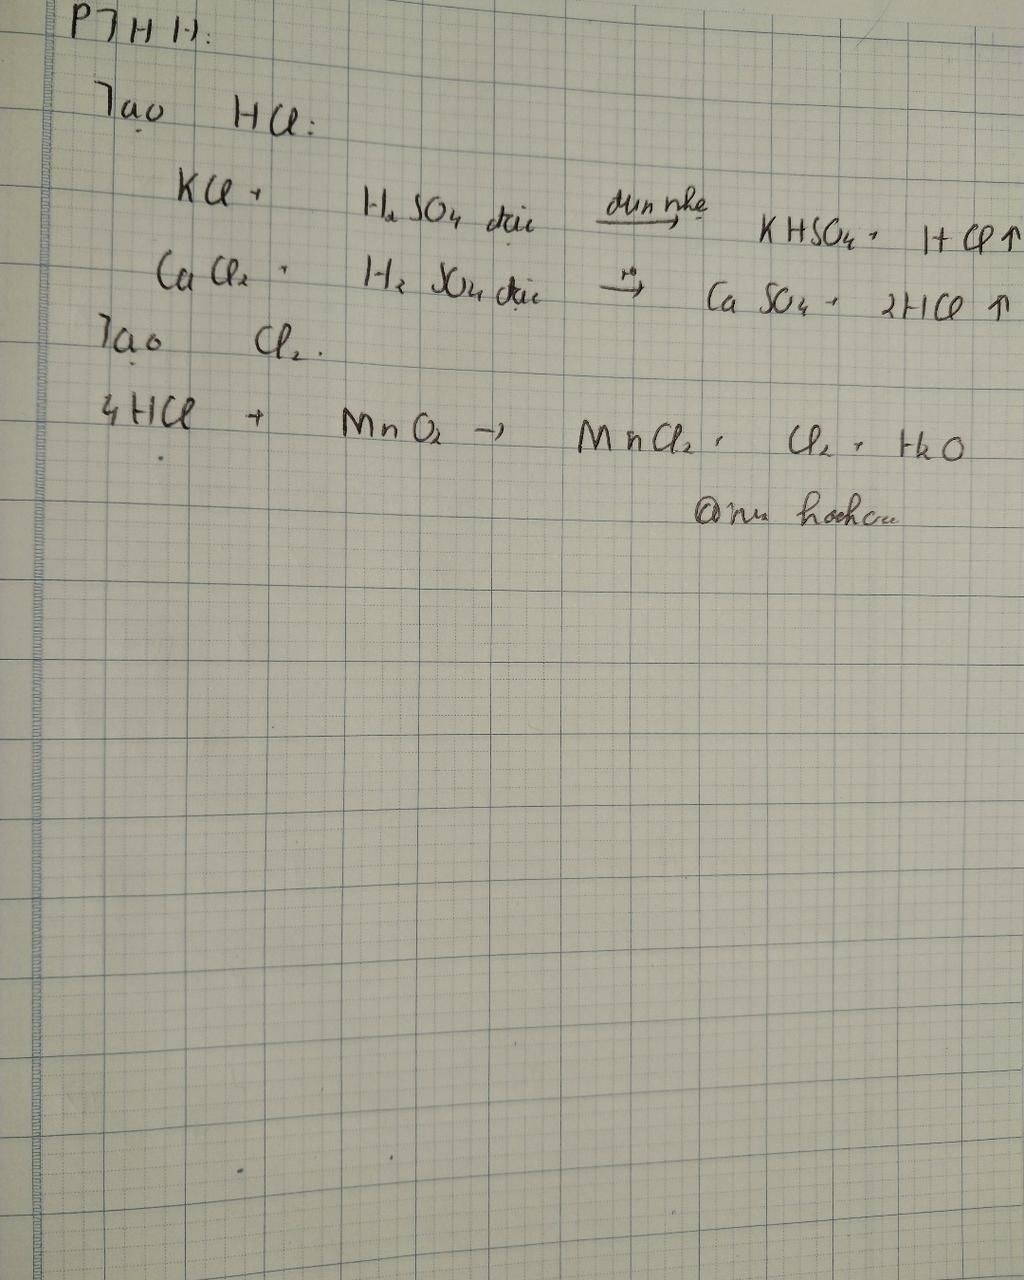 PTHH:
Tạo HCl:
KCl + H₂SO₄ đặc —đun nhẹ→ KHSO₄ + HCl ↑
CaCl₂ + H₂SO₄ đặc —t°→ CaSO₄ + 2HCl ↑
Tạo Cl₂.
4HCl + MnO₂ → MnCl₂ + Cl₂ + H₂O